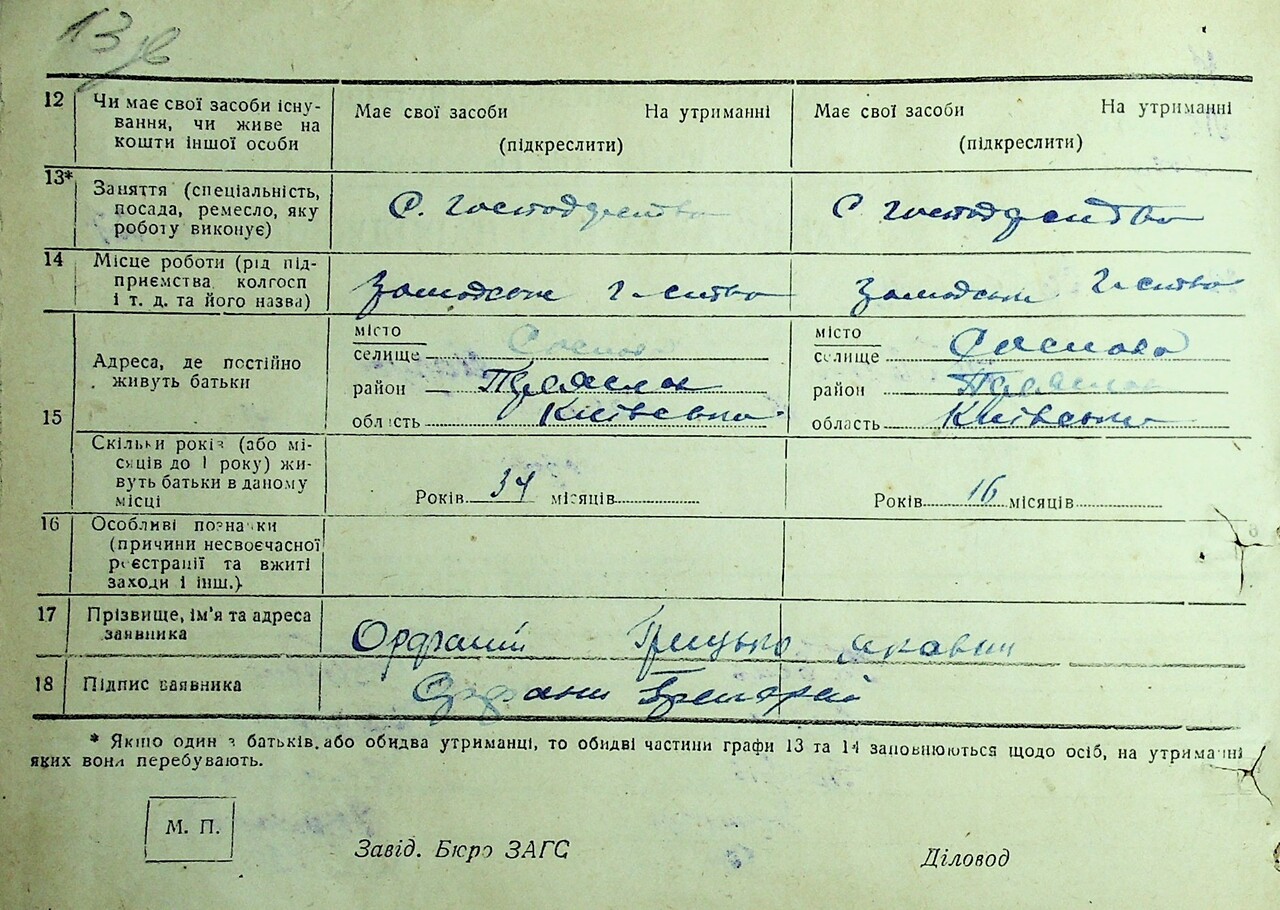 13 зв
12 Чи має свої засоби існу-
вання, чи живе на
кошти іншої особи
Має свої засоби На утриманні
(підкреслити)
Має свої засоби На утриманні
(підкреслити)
13* Заняття (спеціальність,
посада, ремесло, яку
роботу виконує)
С. Господарство
С Господарство
14 Місце роботи (рід під-
приємства, колгосп
і т. д. та його назва)
15 Адреса, де постійно
живуть батьки
місто
селище Соснова
район Переяслов
область Київська
місто
селище Соснова
район Переяслов
область Київська
Скільки років (або мі-
сяців до 1 року) жи-
вуть батьки в даному
місці
Років 34 місяців
Років 16 місяців
16 Особливі позначки
(причини несвоєчасної
реєстрації та вжиті
заходи і інш.)
17 Прізвище, ім'я та адреса
заявника
Грицько Якович
18 Підпис заявника
* Якщо один з батьків, або обидва утриманці, то обидві частини графи 13 та 14 заповнюються щодо осіб, на утриманні
яких вони перебувають.
М. П.
Завід. Бюро ЗАГС
Діловод